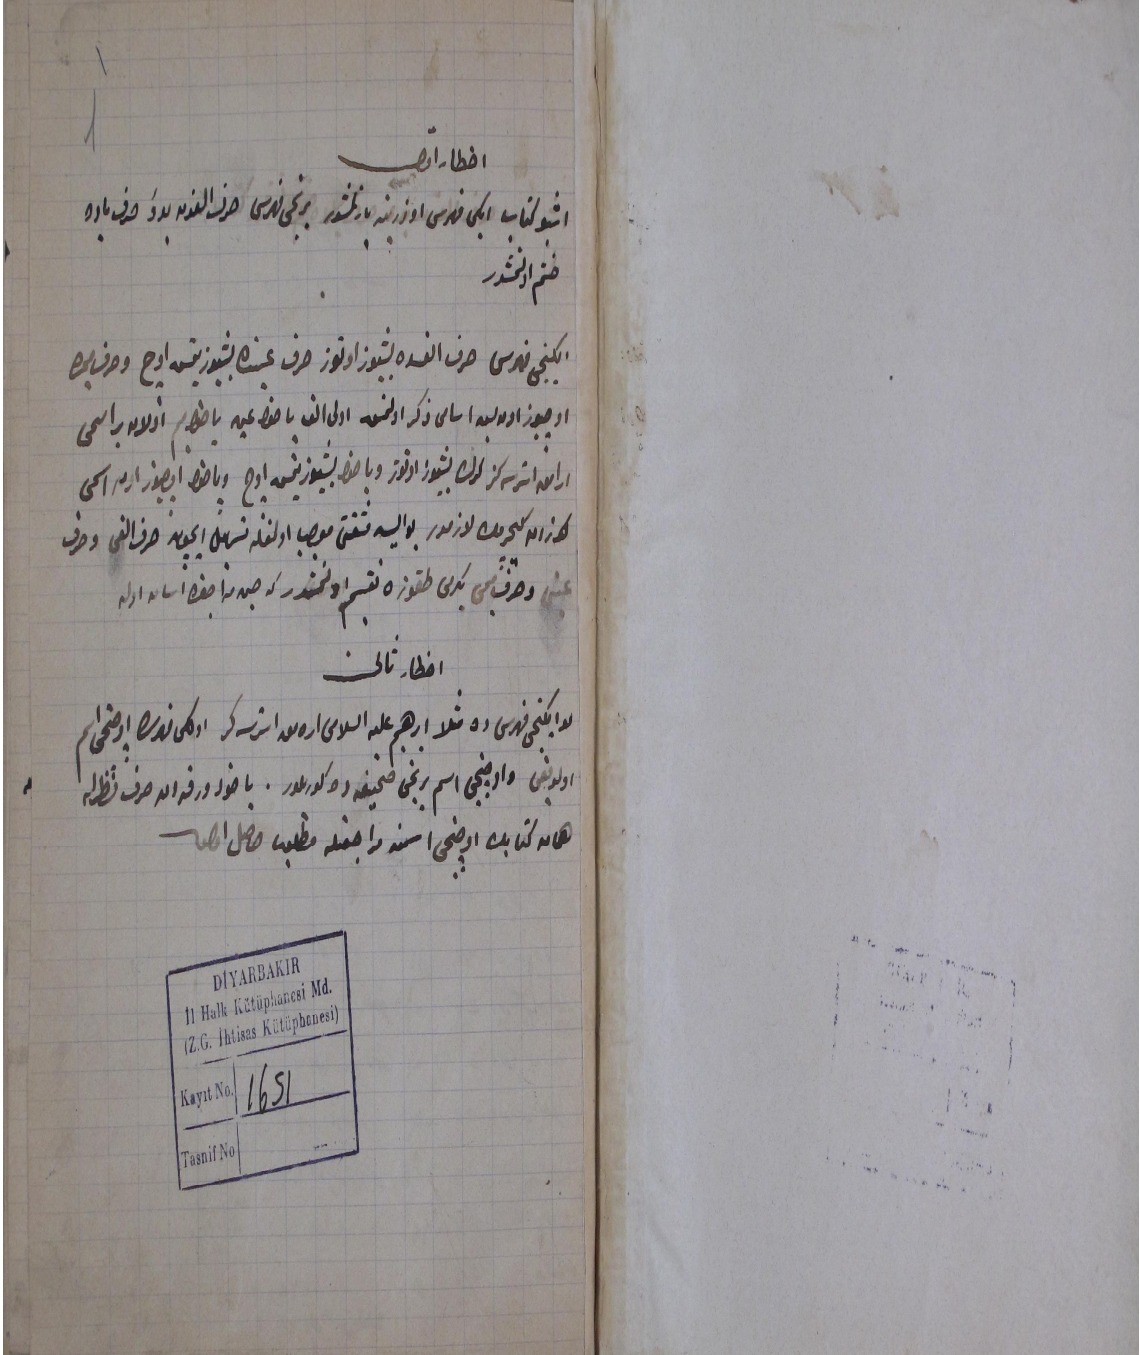 اخطار اول
اشبو كتاب ايكى فهرس اوزرينه يازلمشدر برنجى فهرسى حرف الفدن بدؤ حرف ياده
ختم اولنمشدر
ايكنجى فهرسى حرف الفده بشيوز اوتوز حرف عينده بشيوز يتمش اوچ و حرف ميمده
اوچيوز اون اسامى ذكر اولنمش اولى الف ياخود عين ياخود ميم اولان بر اسمى
ارامق استرسه كز بشيوز اوتوز وياخود بشيوز يتمش اوچ وياخود اوچيوز اون اسمى
كوزدن كچيرمك لازمدر بو ايسه مشقتى موجب اولمغله تسهيل ايچون حرف الفى و حرف
عينى و حرف ميمى يكرمى طقوزه تقسيم اولنمشدر كه حين مراجعتده اسان اوله
اخطار ثانى
بو ايكنجى فهرسى ده مثلا ابرهيم عليه السلامى ارامق استرسه كز اولكى فهرسده اوچنجى اسم
اولديغى و اوچنجى اسم برنجى صحيفه ده كوريلور . ياخود ورقه الف حرف نظرله
همان كتابك اوچنجى اسمنه مراجعتله مطلوب حاصل اولور
DİYARBAKIR
İl Halk Kütüphanesi Md.
(Z.G. İhtisas Kütüphanesi)
Kayıt No. 1651
Tasnif No